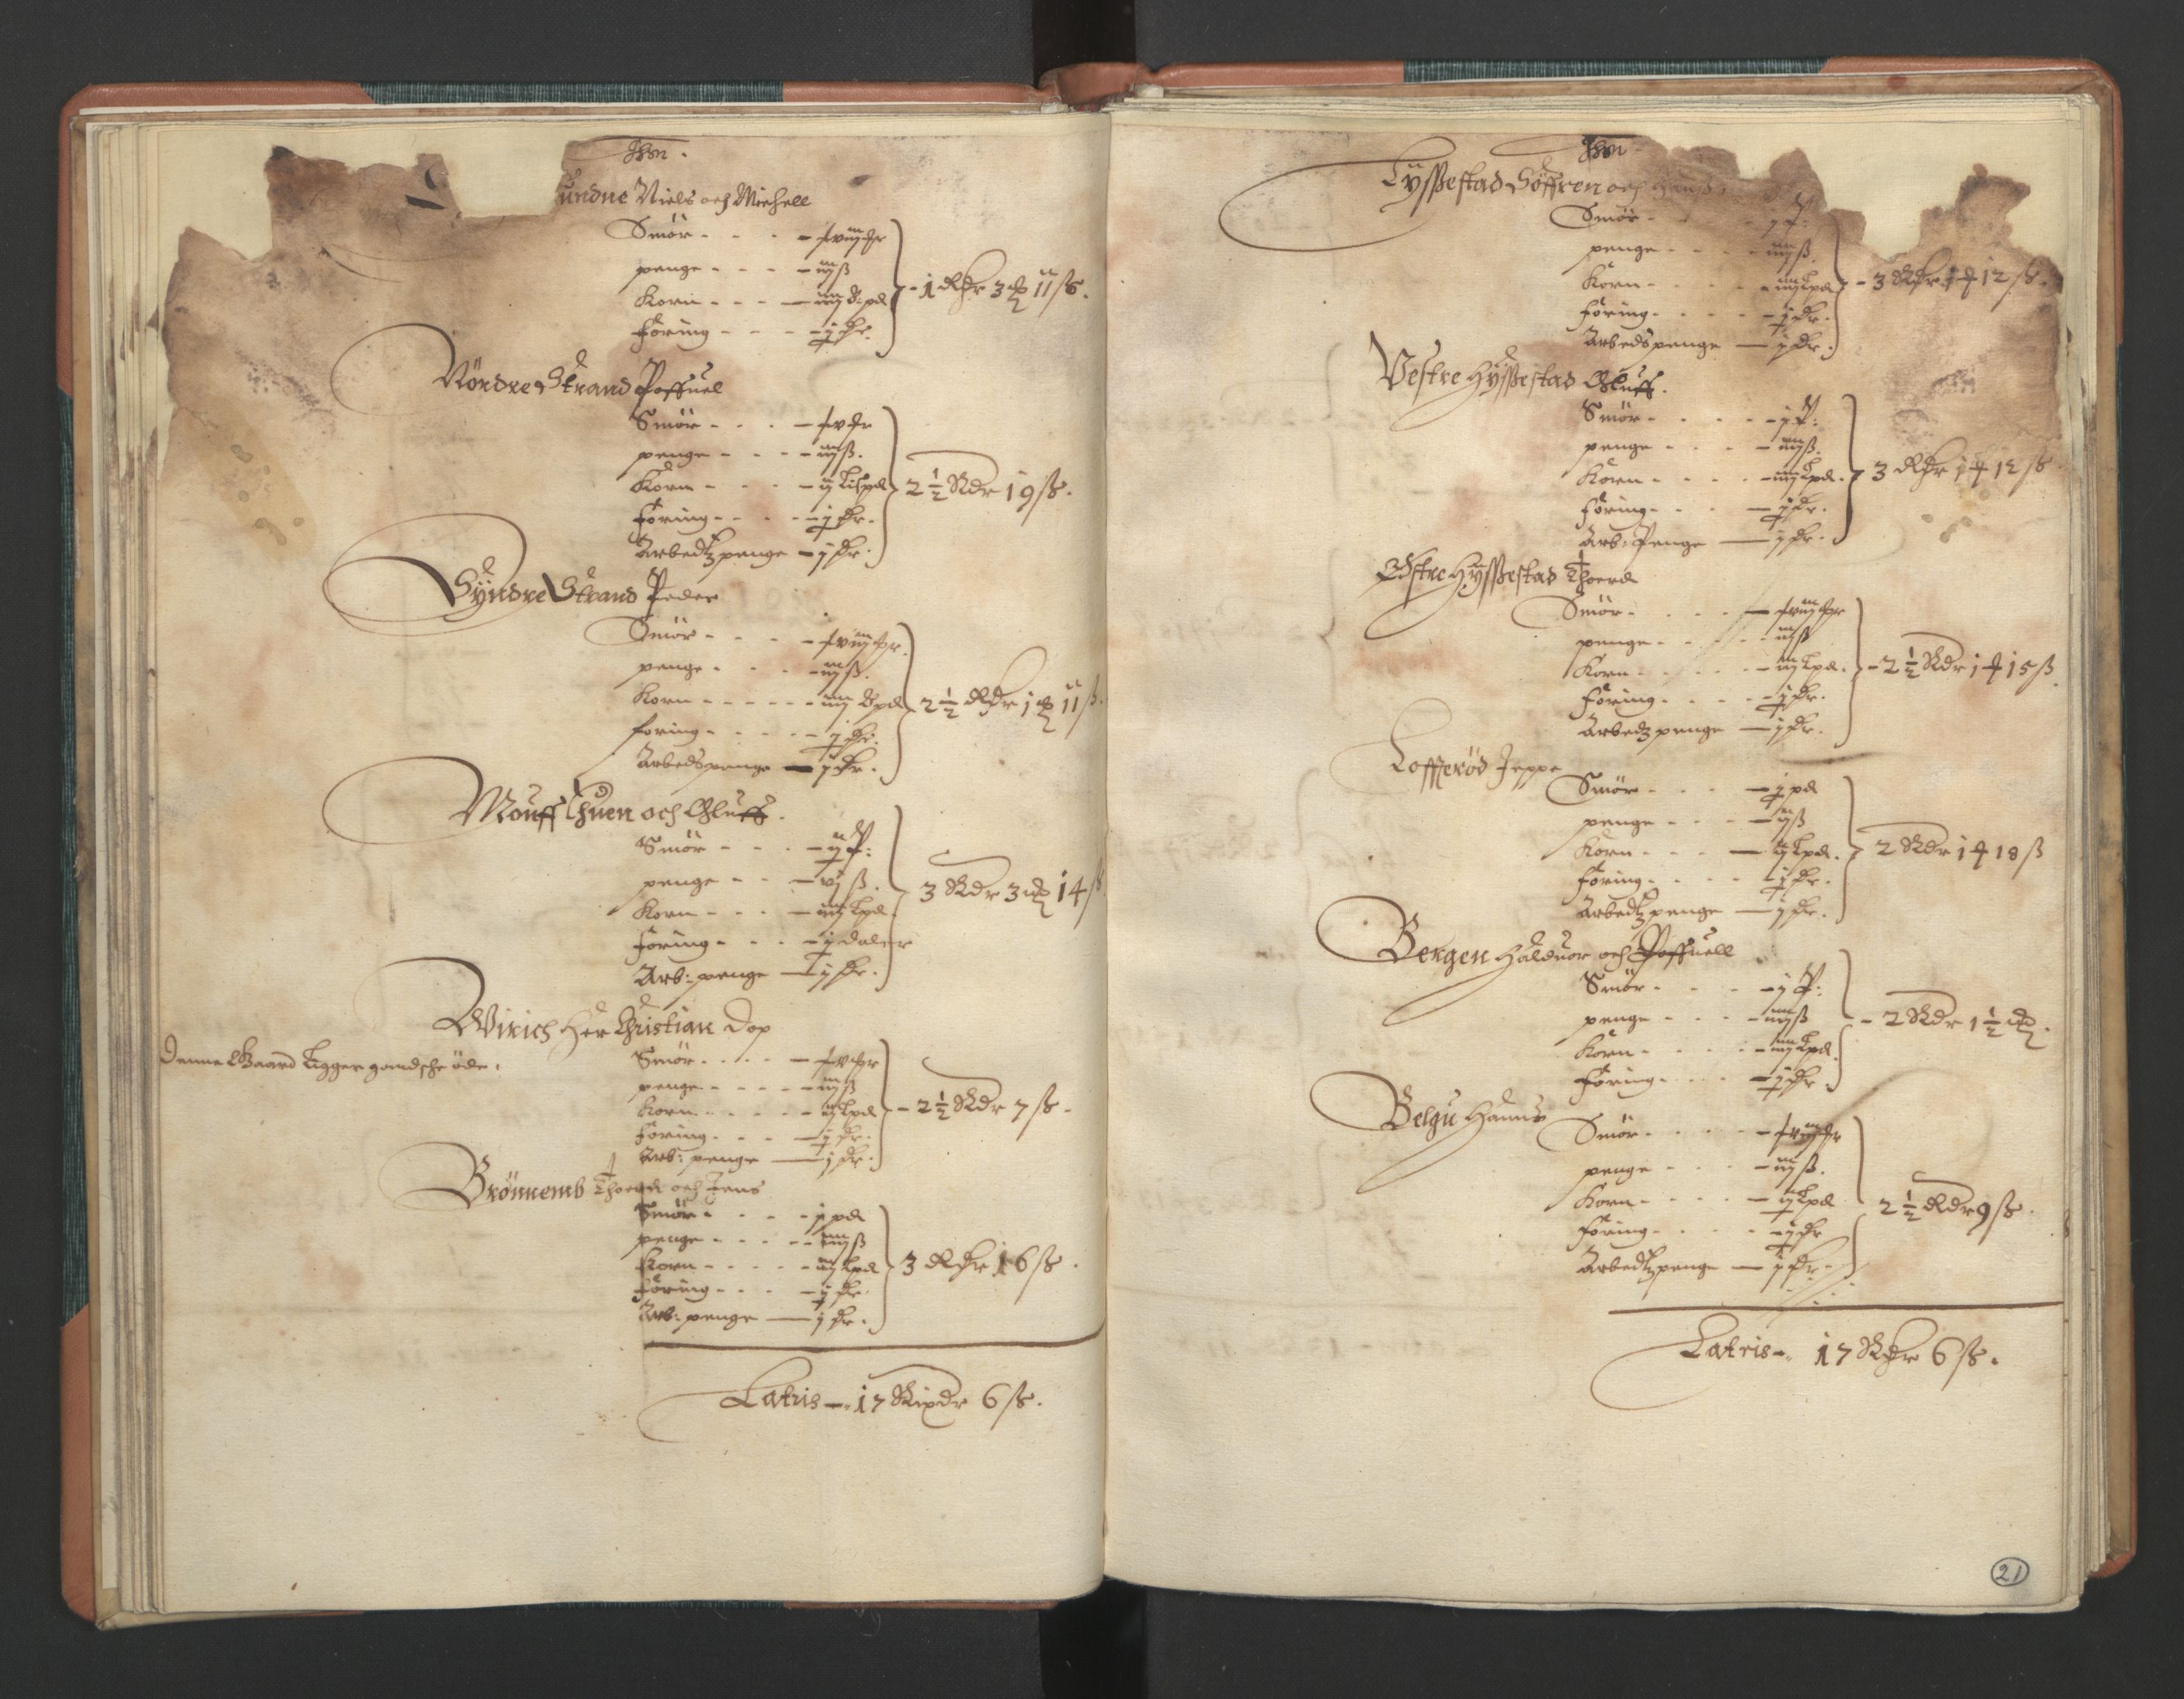 Jhm.
undne Niels och Michell
Smör - - - - ƒ viij mr
penge - - - - iiij ß
Korn - - - - iiij S: pd
föring - - - - j dr.
- 1 Rdr 3 11 ß.
Nördre Strand Poffuel
Smör - - - - ƒ v mr
penge - - - - iiij ß.
Korn - - - - ij Lispd
föring - - - - j dr.
Arbedtz penge - j dr.
2 1/2 Rdr 19 ß.
Syndre Strand Peder
Smör - - - - ƒ viij mr.
penge - - - - iij ß.
Korn - - - - iiij Spd
föring - - - - j dr.
Arbedspenge - j dr.
2 1/2 Rdr 1 11 ß.
Mouff Thuen och Oluff.
Smör - - - - ij P:
penge - - - vj ß.
Korn - - - iiij Lpd.
föring - - - j daler
Arb: penge - j dr.
3 Rdr 3 14 ß
Wirich Her Christian Dop
Denne Gaard Ligger gandsche öde.
Smör - - - - ƒ v mr
penge - - - - iij ß
Korn - - - - ij Lpd
föring - - - j dr.
Arb: penge - j dr.
- 2 1/2 Rdr 7 ß -
Brönnemb Thoerd och Jens
Smör - - - - j pd
penge - - - - iiij ß
Korn - - - - iij Lpd
föring - - - j dr.
Arb: penge - j dr.
3 Rdr 16 ß.
Latris -. 17 Rixdr 6 ß.
Jhm
Lyssestad Söffren och
Smör - - - - j P:
penge - - - - iiij ß.
Korn - - - - iiij Lpd
föring - - - - j dr.
Arbedspenge - j dr.
- 3 Rdr 1 12 ß.
Vestre Hyssestad Oluff.
Smör - - - - j P:
penge - - - - iiij ß.
Korn - - - - iiij Lpd.
föring - - - j dr.
Arb: Penge - j dr.
3 Rdr 1 12 ß
Östre Hyssestad Thoerd
Smör - - - - ƒ viij mr
penge - - - - iij ß
Korn - - - - iij Lpd.
föring - - - - j dr.
Arbedtz penge - j dr.
- 2 1/2 Rdr 1 15 ß
Lofftzröd Jeppe
Smör - - - j pd
penge - - - ij ß
Korn - - - ij Lpd.
föring - - - - j dr.
Arbedtz penge - j dr.
2 Rdr 1 18 ß
Bergen Halduor och Poffuell
Smör - - - j P:
penge - - - - iiij ß
Korn - - - - iiij Lpd.
föring - - - j dr.
- 2 Rdr 1 1/2
Belgu Hanns
Smör - - - - ƒ viij mr
penge - - - iij ß.
Korn - - - - ij Lpd
föring - - - - j dr
Arbedtz penge - j dr.
2 1/2 Rdr 9 ß.
Latris -. 17 Rdr 6 ß.
21